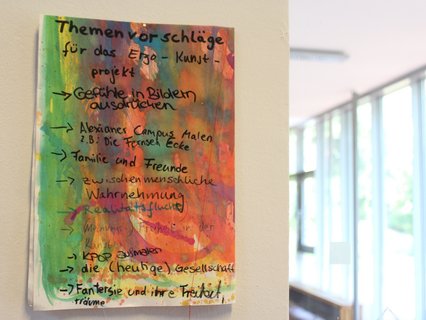 Themenvorschläge
für das Ergo - Kunst -
projekt
→ Gefühle in Bildern
ausdrücken
→ Alexianer Campus Malen
z.B: Die Fernseh Ecke
→ Familie und Freunde
→ zwischenmenschliche
Wahrnehmung
→ Realitätsflucht
→ Freiheit in der
→ KPOP ausmalen
→ die (heutige) Gesellschaft
→ Fantersie und ihre Freiheit
träume